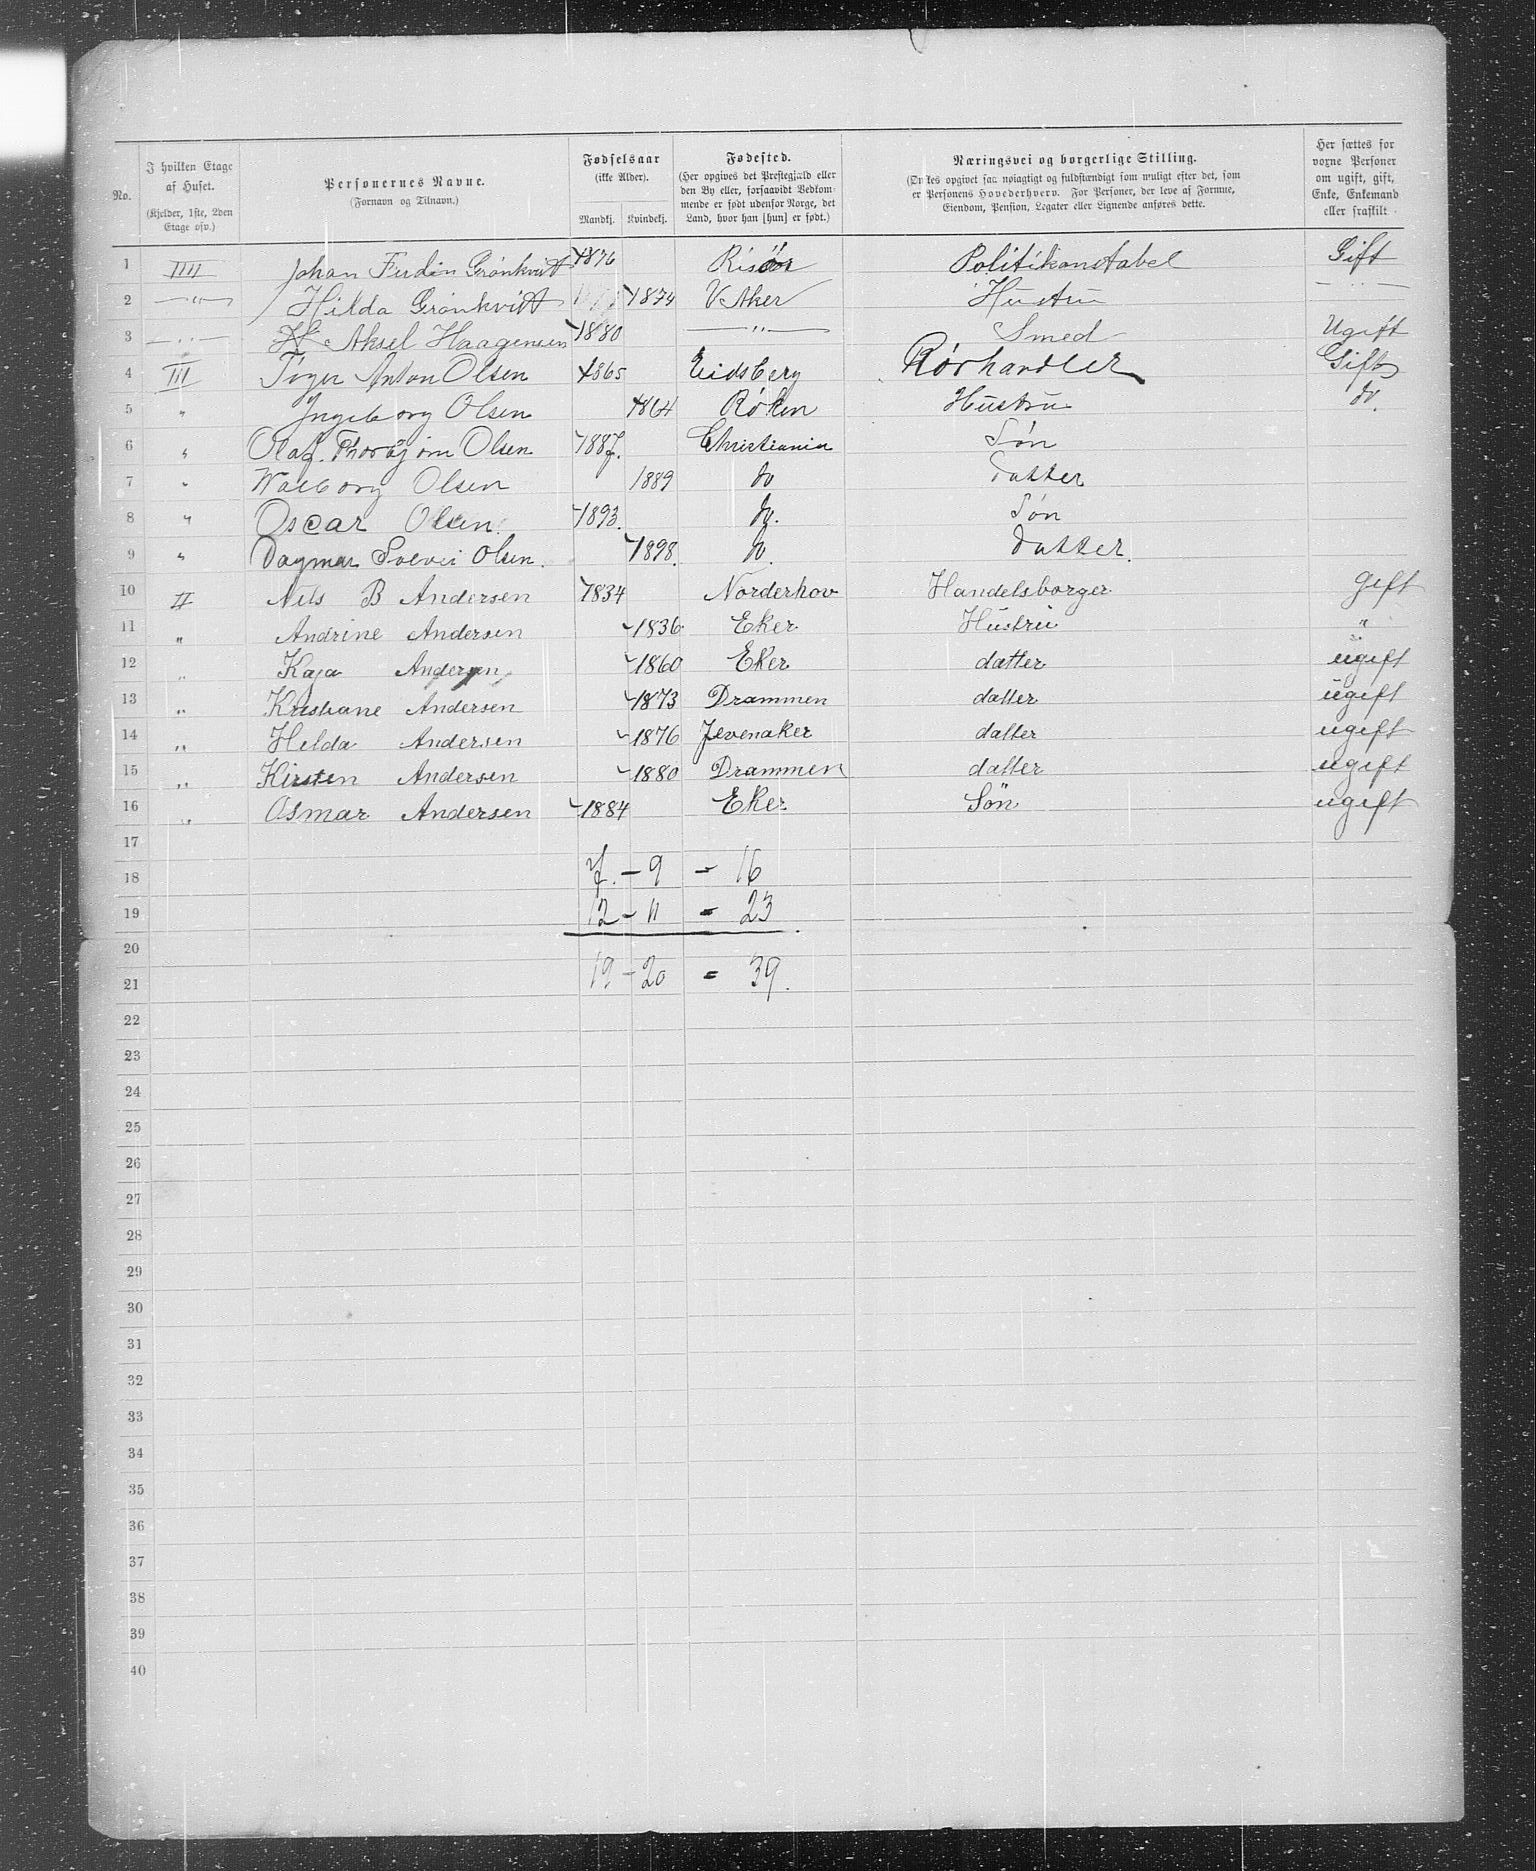 No.
I hvilken Etage af Huset.
(Kjelder, 1ste, 2den Etage osv.)
Personernes Navne.
(Fornavn og Tilnavn.)
Fødselsaar
(ikke Alder).
Mandkj. Kvindekj.
Fødested.
(Her opgives det Præstegjæld eller
den By eller, forsaavidt Vedkom-
mende er født udenfor Norge, det
Land, hvor han [hun] er født.)
Næringsvei og borgerlige Stilling.
(Ønskes opgivet saa nøiagtigt og fuldstændigt som muligt efter det, som
er Personens Hovederhverv. For Personer, der leve af Formue,
Eiendom, Pension, Legater eller Lignende anføres dette.
Her sættes for
voxne Personer
om ugift, gift,
Enke, Enkemand
eller fraskilt.
1 IIII Johan Ferdin Grönkvist 1876 Risöer Politikonstabel Gift
2 —"— Hilda Grönkvist 1874 V Aker Hustru —"—
3 —"— Aksel Haagensen 1880 —"— Smed Ugift
4 III Inger Anton Olsen 1865 Eidsberg Rørhandler Gift
5 " Ingeborg Olsen 1864 Røken Hustru do.
6 " Olaf Thorbjørn Olsen 1887. Christiania Søn
7 " Walborg Olsen 1889 do datter
8 " Oscar Olsen. 1893. do. Søn
9 " Dagmar Solvei Olsen. 1898. do. datter.
10 II Nils B Andersen 1834 Norderhov Handelsborger gift
11 " Andrine Andersen 1836 Eker Hustru "
12 " Kaja Andersen 1860 Eker datter ugift
13 " Kristiane Andersen 1873 Drammen datter ugift
14 " Helda Andersen 1876 Jevenaker datter ugift
15 " Kirsten Andersen 1880 Drammen datter ugift
16 " Osmar Andersen 1884 Eker Sön ugift
17
18 7. – 9 = 16
19 12 – 11 = 23
20
21 19 – 20 = 39.
22
23
24
25
26
27
28
29
30
31
32
33
34
35
36
37
38
39
40